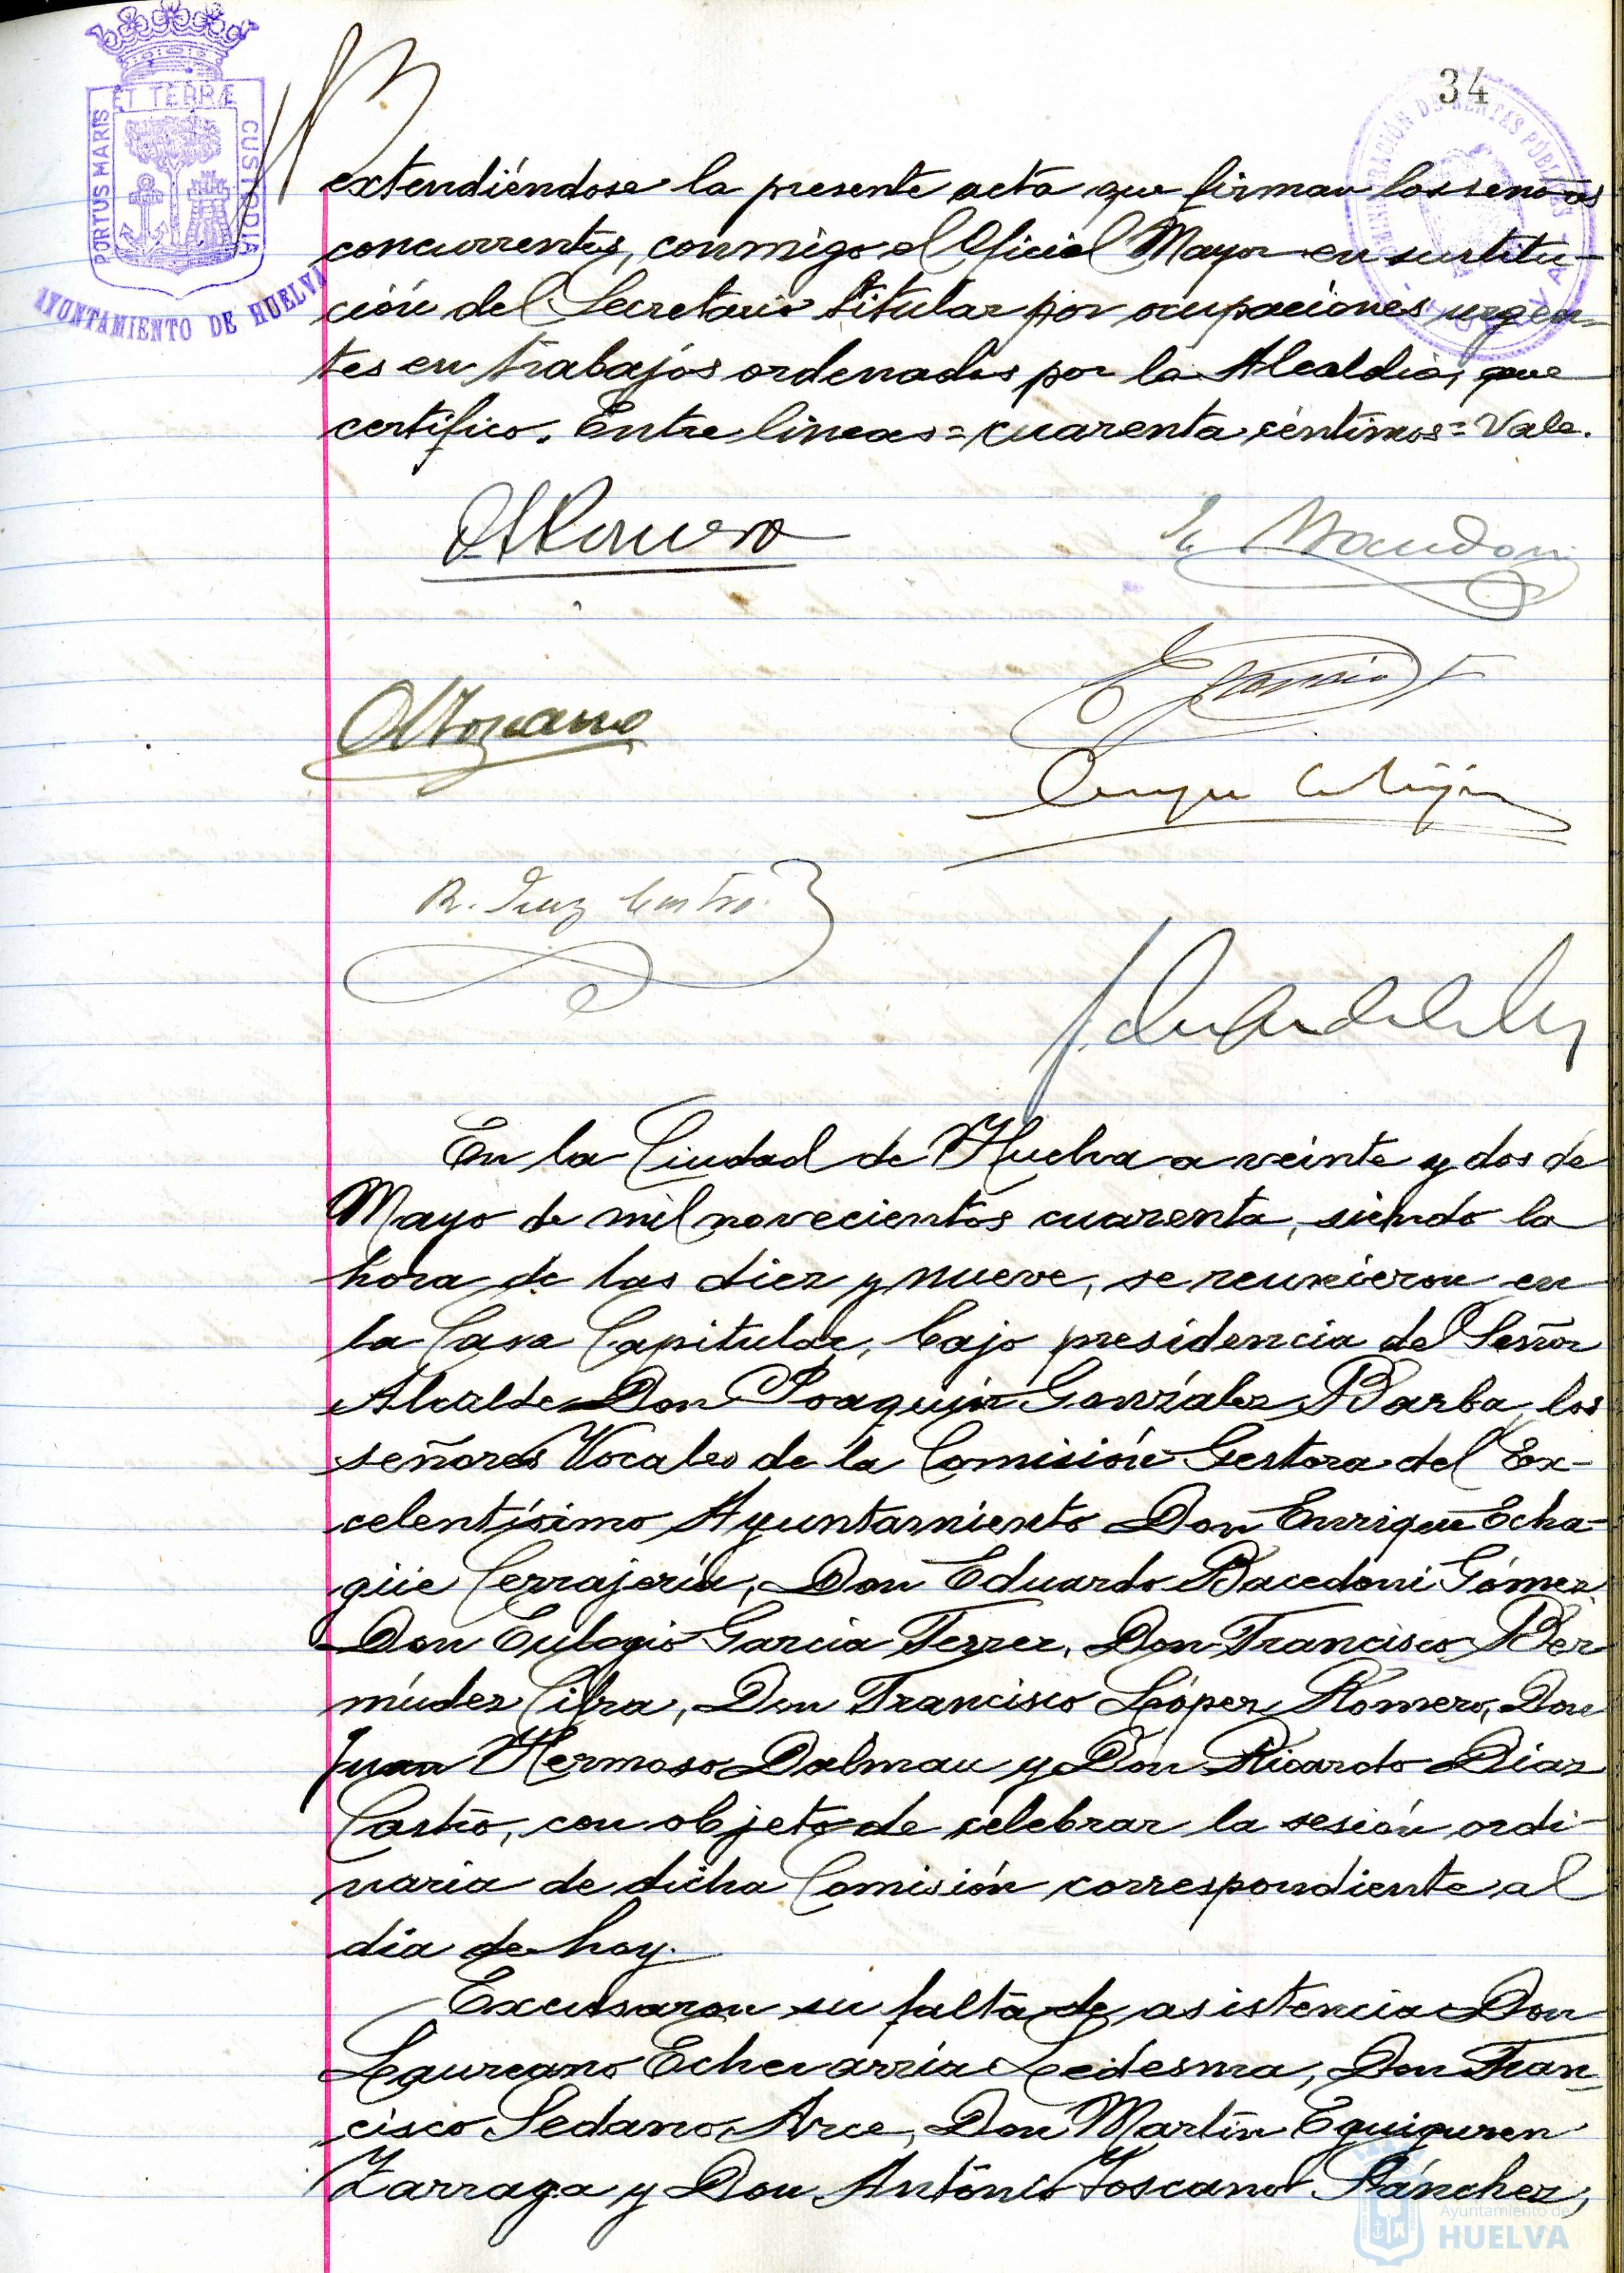 34
ET TERRÆ
PORTUS MARIS
CUSTODIA
AYUNTAMIENTO DE HUELVA
extendiéndose la presente acta que firman los señores
concurrentes, conmigo el Oficial Mayor en sustitu-
ción del Secretario titular por ocupaciones urgen-
tes en trabajos ordenados por la Alcaldia, que
certifico. Entre lineas = cuarenta céntimos = Vale.
R. Diaz Castro
En la Ciudad de Huelva a veinte y dos de
Mayo de mil novecientos cuarenta, siendo la
hora de las diez y nueve, se reunieron en
la Casa Capitular, bajo presidencia del Señor
Alcalde Don Joaquin González Barba, los
señores Vocales de la Comisión Gestora del Ex-
celentísimo Ayuntamiento Don Enrique Echa-
güe Cerrajería, Don Eduardo Bacedoni Gómez,
Don Eulogio Garcia Ferrer, Don Francisco Ber
múdez Cifra, Don Francisco López Romero, Don
Juan Hermoso Dalmau y Don Ricardo Diaz
Castro, con objeto de celebrar la sesión ordi-
naria de dicha Comisión correspondiente al
dia de hoy.
Excusaron su falta de asistencia Don
Laureano Echevarría Ledesma, Don Fran-
cisco Sedano Arce, Don Martín Eguiguren
Zarraga y Don Antonio Toscano Sánchez,
Ayuntamiento de
HUELVA